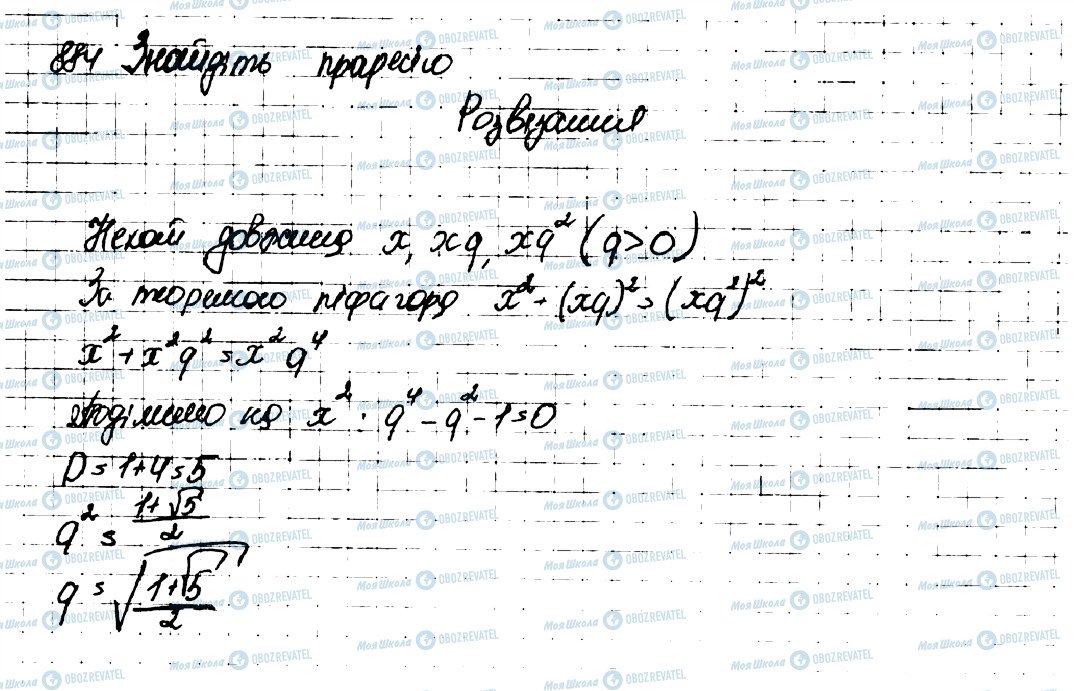 884 Знайдіть прогресію
Розв'язання
Нехай довжина x, xq, xq² (q>0)
За теоремою піфагора x² + (xq)² = (xq²)²
x² + x²q² = x²q⁴
Поділимо на x²: q⁴ - q² - 1 = 0
D = 1 + 4 = 5
q² = (1+√5)/2
q = √((1+√5)/2)